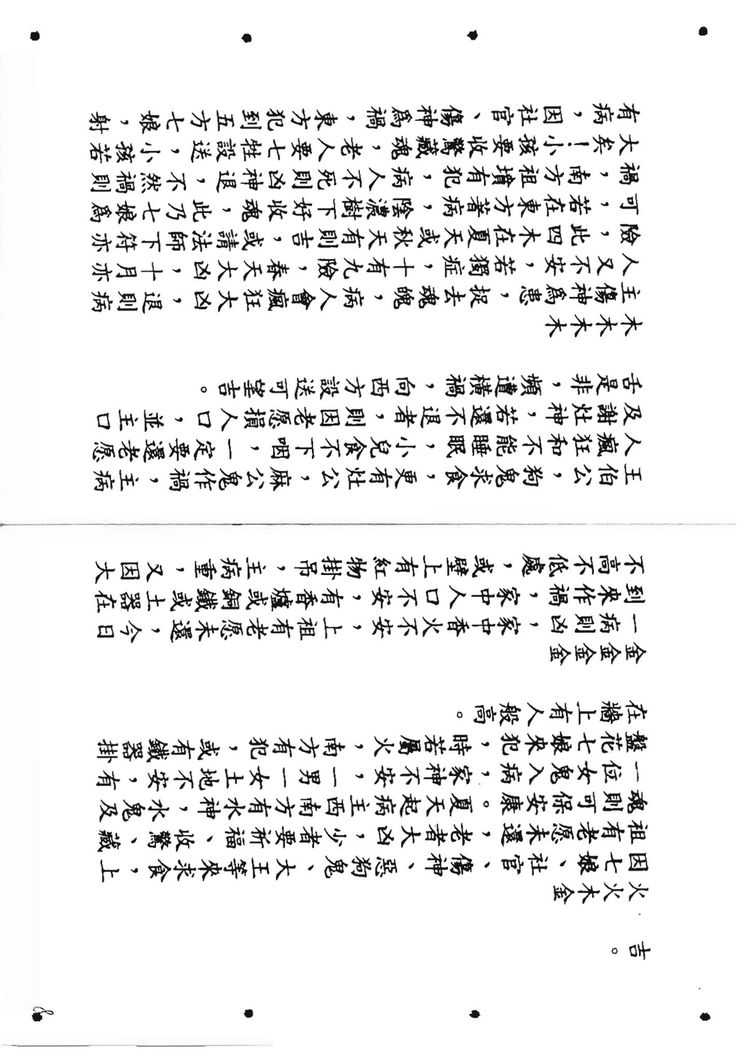 吉。
火火木金
因七娘、社官、傷神、惡狗鬼、大王等來求食,上
祖有老愿未還,老者大凶,少者要祈福、收驚、藏
魂則可保安康。夏天起病主西南方有水神,水鬼及
一位女鬼入病,家神不安,一男一女土地不安,有
盤花七娘來犯,時若屬火,南方有犯,或有鐵器掛
在牆上有人般高。
金金金金
一病則凶,家中香火不安,上祖有老愿未還,今日
到來作禍,家中人口不安,有香爐或銅鐵或土器在
不高不低處,或壁上有紅物掛吊,主病重,又因大
王伯公,狗鬼求食,更有灶公,麻公鬼作禍,主病
人瘋狂和不能睡眠,小兒食不下咽,一定要還老愿
及謝灶神,若還不退者,則因老愿損人口,並主口
舌是非,頻遭橫禍,向西方設送可望吉。
木木木木
主傷神爲患,捉去魂魄,病人會瘋狂大凶,退則病
人又不安,若獨症,十有九險,春天大凶,十月亦
險,此四木在夏天或秋天有則吉,或請法師下符亦
可,若在東方著病,陰濃樹下好收魂,此乃七娘爲
禍,南方祖墳有犯,病人不死則凶神退,不然禍則
大矣!小孩要收驚藏魂,老人要七牲設送,小孩若
有病,因社官、傷神爲禍,東方犯到五方七娘,射
8